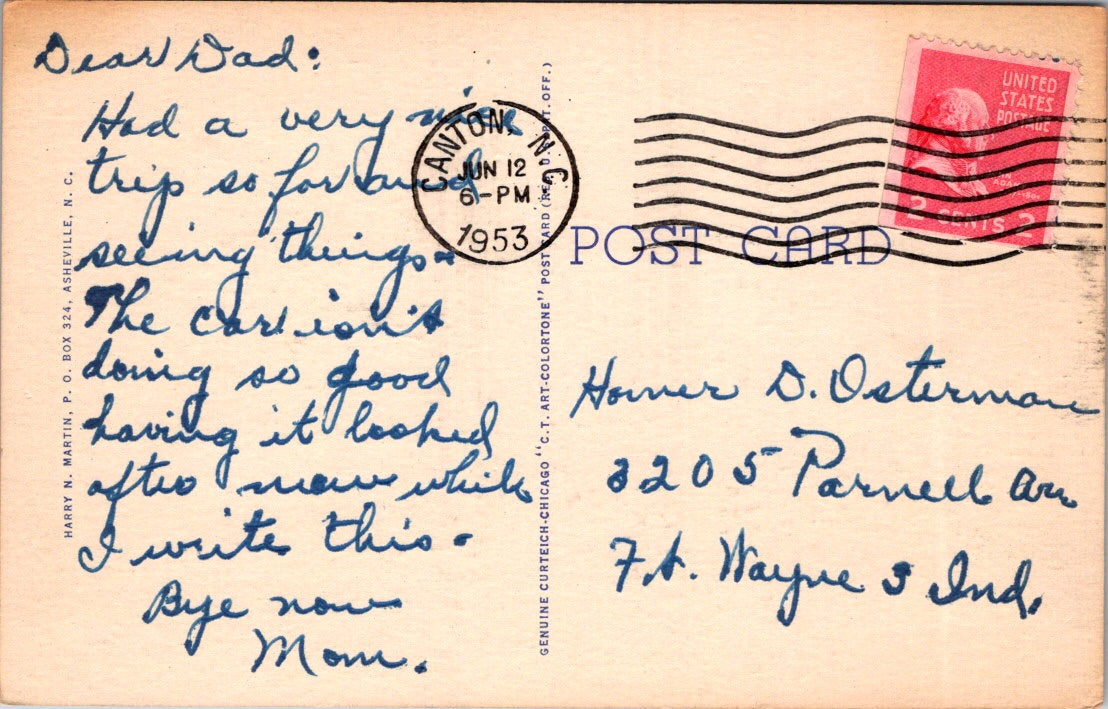 Dear Dad:
Had a very nice
trip so far and
seeing things-
The car isn't
doing so good
having it looked
after now while
I write this-
Bye now
Mom.
HARRY N. MARTIN, P. O. BOX 324, ASHEVILLE, N. C.
GENUINE CURTEICH-CHICAGO "C.T. ART-COLORTONE" POST CARD (REG. U.S. PAT. OFF.)
CANTON, N.C.
JUN 12
6-PM
1953
UNITED
STATES
POSTAGE
JOHN
ADAMS
2 CENTS 2
POST CARD
Homer D. Osterman
3205 Parnell Ave
Ft. Wayne 3 Ind.